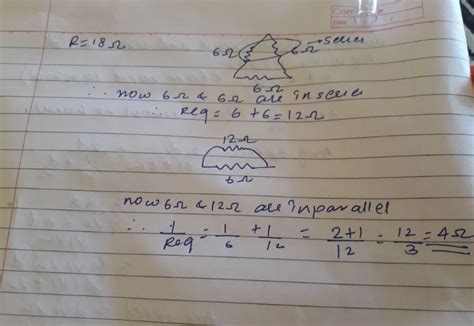 R=18Ω
6Ω 6Ω →Series
6Ω
∴ now 6Ω & 6Ω are in series
∴ Req = 6+6=12Ω
12Ω
6Ω
now 6Ω & 12Ω are in parallel
∴ 1/Req = 1/6 + 1/12 = 2+1/12 = 12/3 = 4Ω